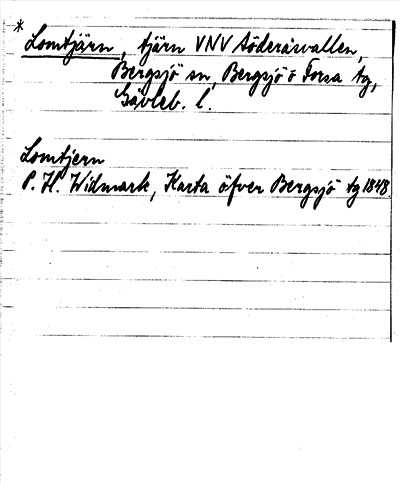 * Lomtjärn, tjärn VNV Söderåsvallen,
Bergsjö sn, Bergsjö o Forsa tg,
Gävleb. l.
Lomtjern
P. H. Widmark, Karta öfver Bergsjö tg 1848.